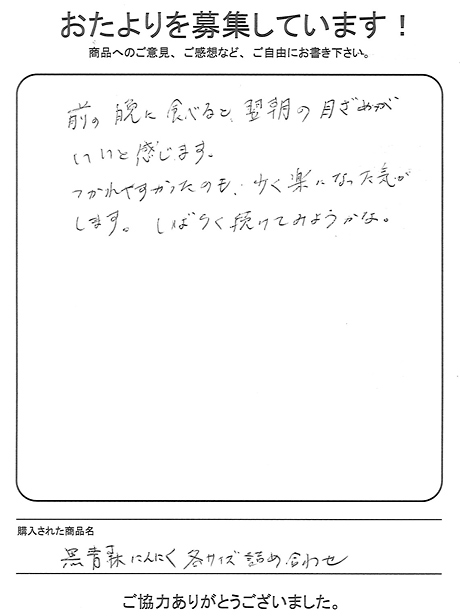 おたよりを募集しています！
商品へのご意見、ご感想など、ご自由にお書き下さい。
前の晩に食べると、翌朝の目ざめが
いいと感じます。
つかれやすかったのも、少く楽になった気が
します。しばらく続けてみようかな。
購入された商品名
黒青森にんにく 各サイズ詰め合わせ
ご協力ありがとうございました。